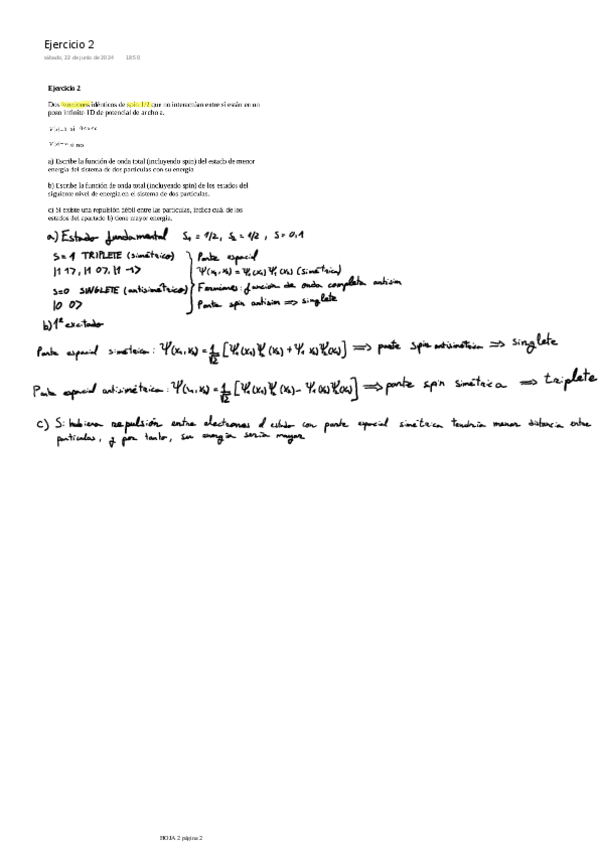 Ejercicio 2
sábado, 22 de junio de 2024 18:50
Ejercicio 2
Dos fermiones idénticos de spin 1/2 que no interactúan entre sí están en un
pozo infinito 1D de potencial de ancho a.
a) Escribe la función de onda total (incluyendo spin) del estado de menor
energía del sistema de dos partículas con su energía
b) Escribe la función de onda total (incluyendo spin) de los estados del
siguiente nivel de energía en el sistema de dos partículas.
c) Si existe una repulsión débil entre las partículas, indica cuál de los
estados del apartado b) tiene mayor energía.
a) Estado fundamental S₁ = 1/2, S₂ = 1/2, S = 0,1
S = 1 TRIPLETE (simétrico) Parte espacial
|1 1>, |1 0>, |1 -1> Ψ(x₁, x₂) = Ψ₁(x₁) Ψ₁(x₂) (simétrica)
S=0 SINGLETE (antisimétrico) Fermiones: función de onda completa antisim
|0 0> Parte spin antisim ⟹ singlete
b) 1º excitado
Parte espacial simétrica: Ψ(x₁, x₂) = 1/√2 [Ψ₁(x₁) Ψ₂(x₂) + Ψ₁(x₂) Ψ₂(x₁)] ⟹ parte spin antisimétrica ⟹ singlete
Parte espacial antisimétrica: Ψ(x₁, x₂) = 1/√2 [Ψ₁(x₁) Ψ₂(x₂) − Ψ₁(x₂) Ψ₂(x₁)] ⟹ parte spin simétrica ⟹ triplete
c) Si hubiera repulsión entre electrones el estado con parte espacial simétrica tendría menor distancia entre
partículas, y por tanto, su energía sería mayor
HOJA 2 página 2